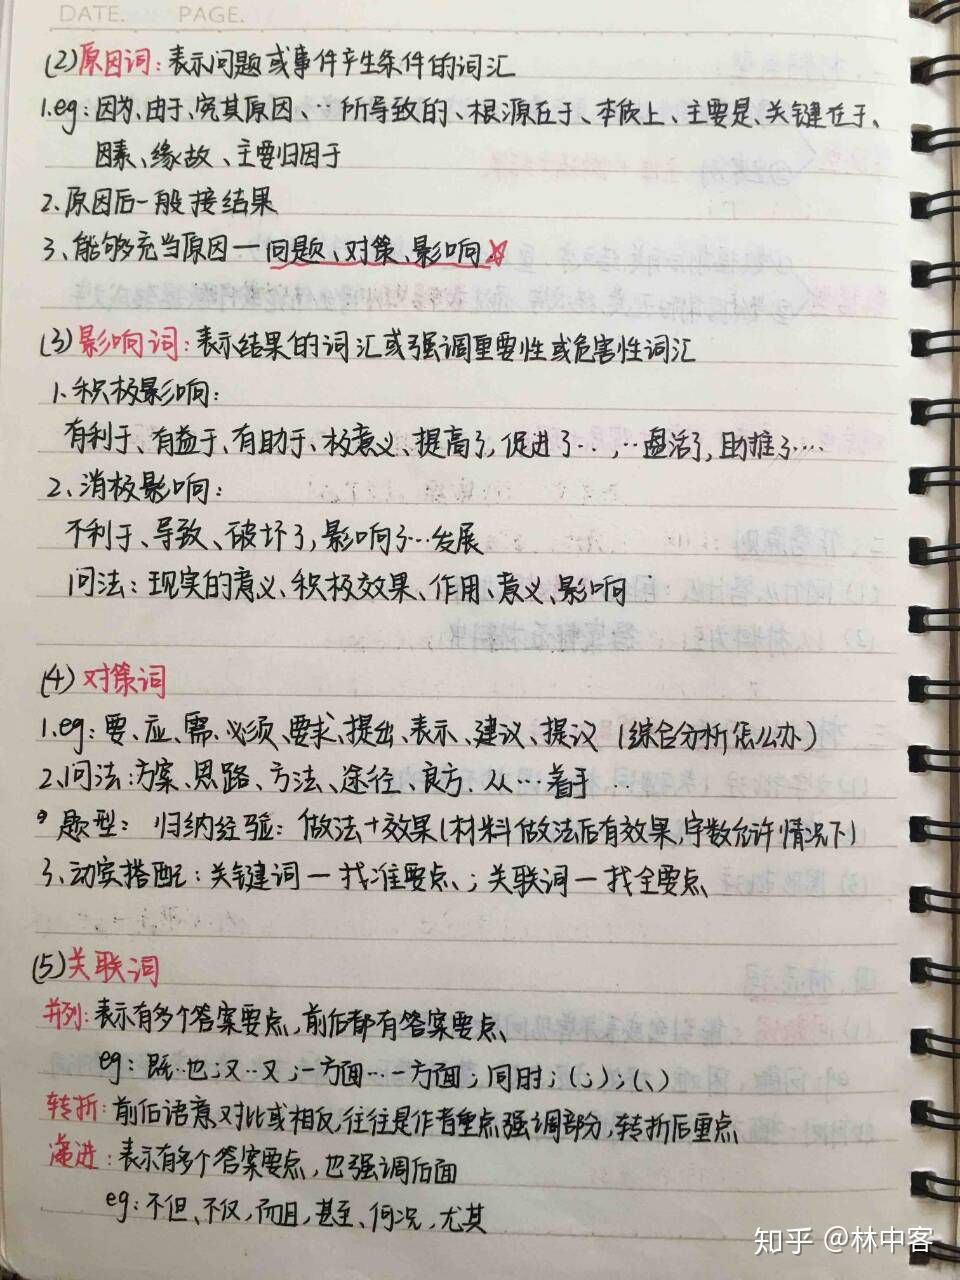 DATE. PAGE.
(2)原因词：表示问题或事件产生条件的词汇
1.eg：因为、由于、究其原因、…所导致的、根源在于、本质上、主要是、关键在于、
因素、缘故、主要归因于
2.原因后一般接结果
3.能够充当原因—问题、对策、影响☆
(3)影响词：表示结果的词汇或强调重要性或危害性词汇
1.积极影响：
有利于、有益于、有助于、极意义、提高了,促进了…,…盘活了,助推了…
2.消极影响：
不利于、导致、破坏了,影响了…发展
问法：现实的意义、积极效果、作用、意义、影响
(4)对策词
1.eg：要、应、需、必须、要求、提出、表示、建议、提议（综合分析怎么办）
2.问法：方案、思路、方法、途径、良方.从…着手…
题型：归纳经验：做法+效果(材料做法后有效果,字数允许情况下)
3.动实搭配：关键词—找准要点；关联词—找全要点
(5)关联词
并列：表示有多个答案要点,前后都有答案要点
eg：既…也；又…又；一方面…一方面；同时；(；)；(、)
转折：前后语意对比或相反,往往是作者重点强调部分,转折后重点
递进：表示有多个答案要点,也强调后面
eg：不但、不仅,而且,甚至、何况,尤其
知乎 @林中客